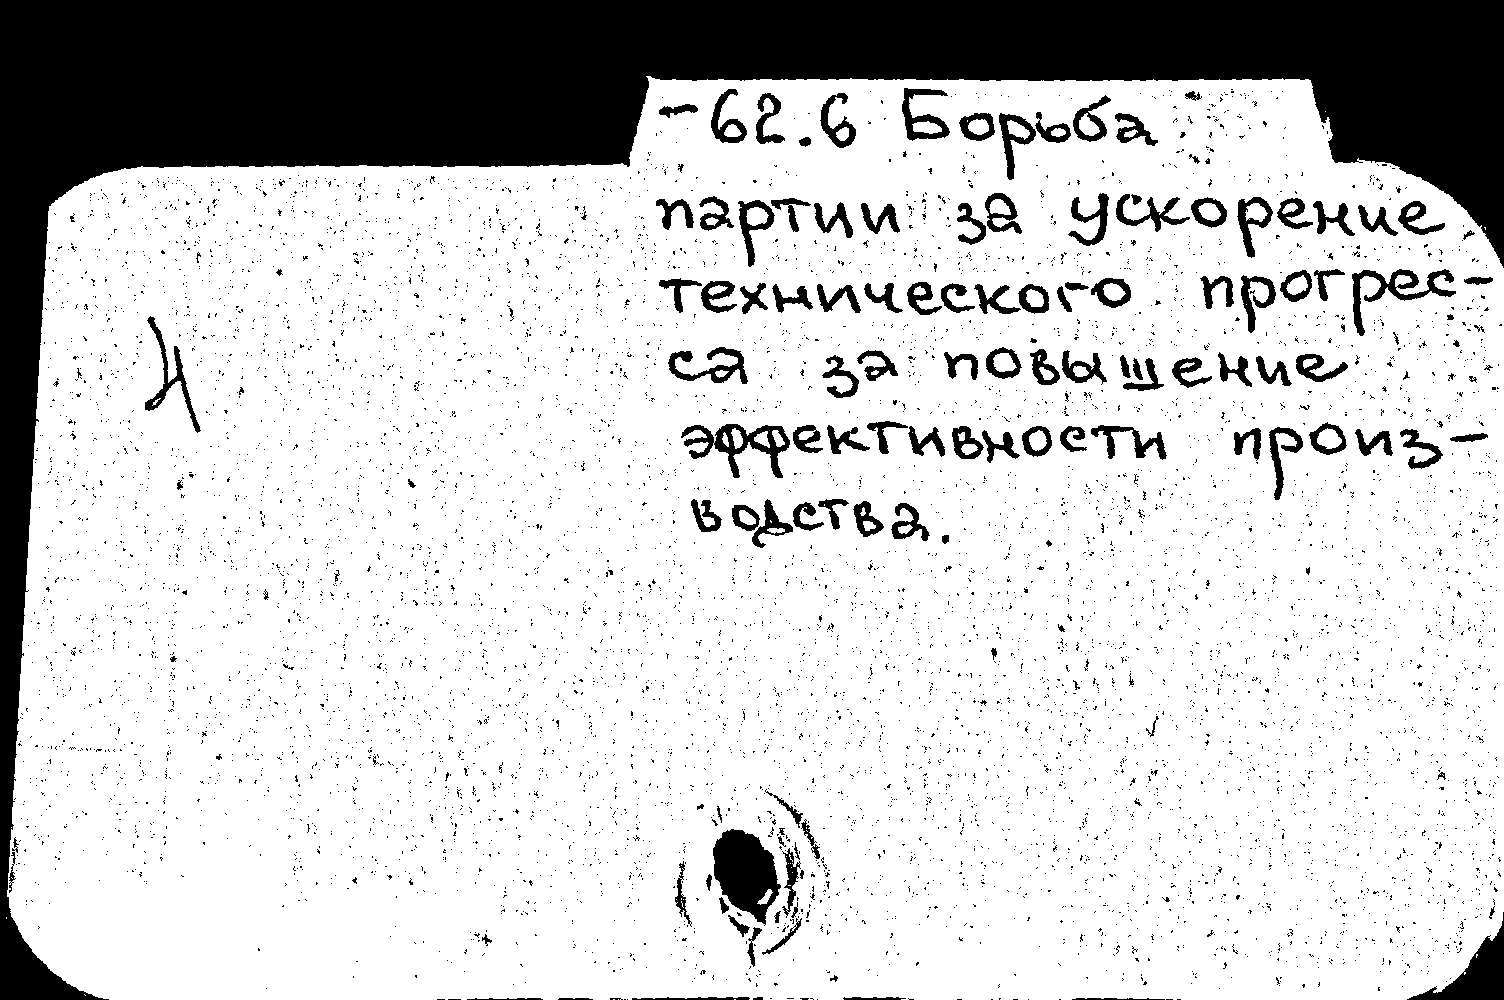 -62.6 Борьба
партии за ускорение
технического прогрес-
са за повышение
эффективности произ-
водства.